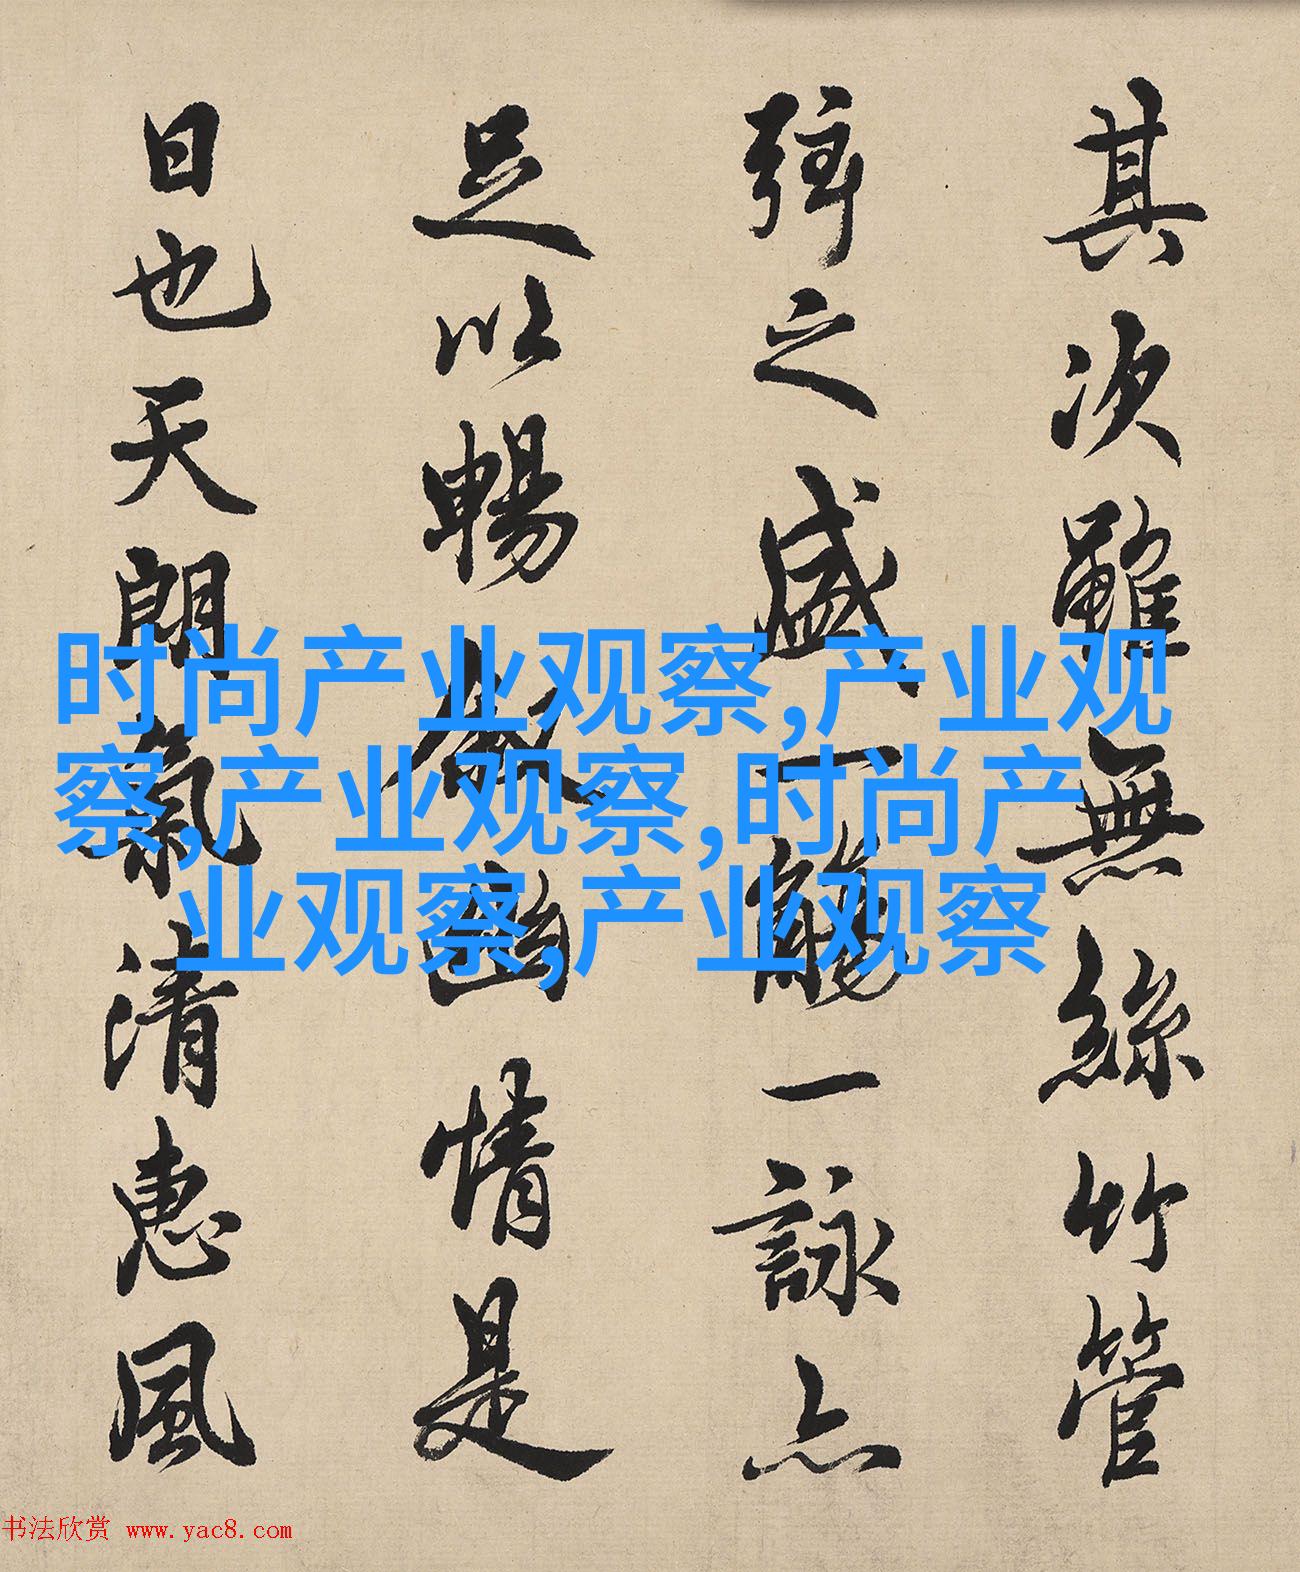 其次雖無絲竹管
弦之盛一觴一詠亦
足以暢叙幽情是
日也天朗氣清惠風
时尚产业观察,产业观
察,产业观察,时尚产
业观察,产业观察
书法欣赏 www.yac8.com